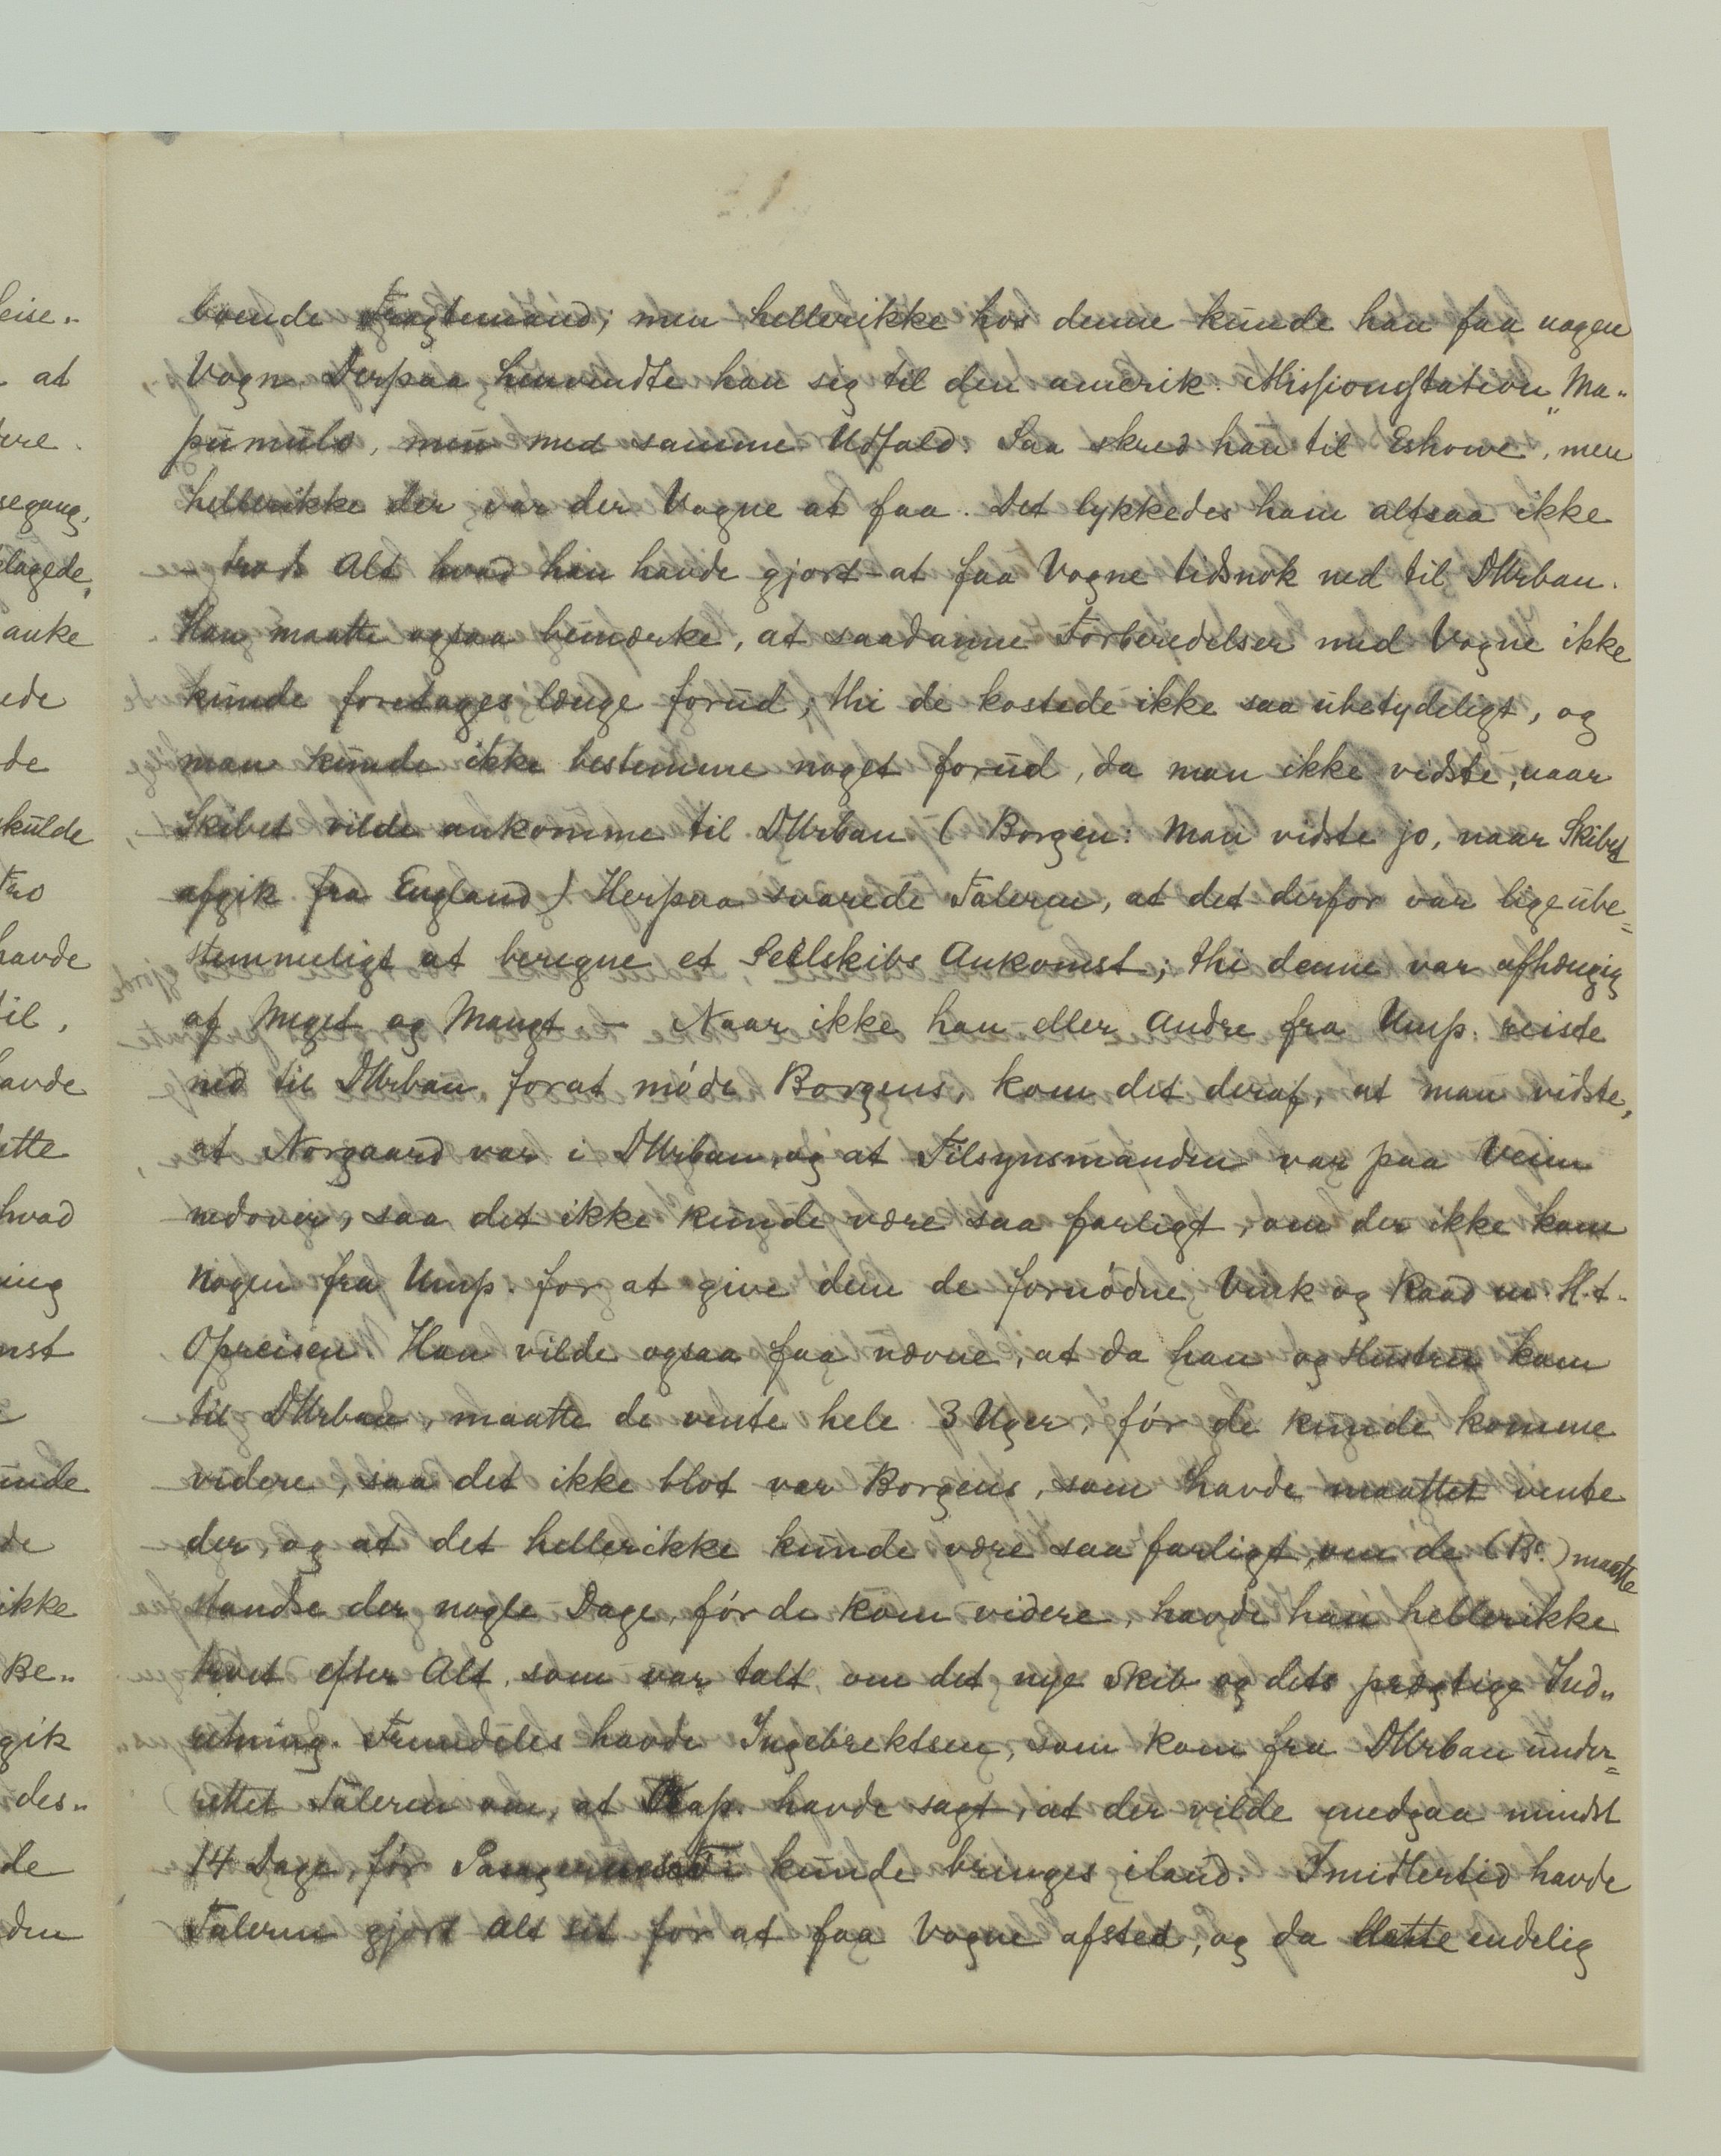 boende Fragtemand; men hellerikke hos denne kunde han faa nogen
Vogn. Derpaa henvendte han sig til den amerik. Missionsstation "Ma„
pumulo, men med samme Udfald. Saa skred han til Eshowe, men
hellerikke der var der Vogne at faa. Det lykkedes ham altsaa ikke
– trods Alt hvad han havde gjort – at faa Vogne tidsnok ned til DUrban.
Han maatte ogsaa bemærke, at saadanne Forberedelser med Vogne ikke
kunde foretages længe forud, thi de kostede ikke saa ubetydeligt, og
man kunde ikke bestemme noget forud, da man ikke vidste, naar
Skibet vilde ankomme til DUrban (Borgen: Man vidste jo, naar Skibet
afgik fra England) Herpaa svarede Taleren, at det derfor var lige ube=
stemmeligt at beregne et Seilskibs Ankomst; thi denne var afhængig
af Meget og Mangt – Naar ikke han eller Andre fra Ump. reiste
ned til DUrban, forat møde Borgens, kom det deraf, at man vidste,
at Norgaard var i DUrban, og at Tilsynsmanden var paa Veien
nedover, saa det ikke kunde være saa farligt, om der ikke kom
Nogen fra Ump. for at give dem de fornødne Vink og Raad m. H. t.
Opreisen. Han vilde ogsaa faa nævne, at da han og Hustru kom
til DUrban, maatte de vente hele 3 Uger, før de kunde komme
videre, saa det ikke blot var Borgens, som havde maattet vente
der, og at det hellerikke kunde være saa farligt, om de (B.) maatte
standse der nogle Dage, før de kom videre, havde han hellerikke
troet efter Alt, som var talt om det nye Skib og dets prægtige Ind„
retning. Fremdeles havde Ingebrektsen, som kom fra DUrban under=
rettet Taleren om, at Kap. havde sagt, at der vilde medgaa mindst
14 Dage, før kunde bringes iland. Imidlertid havde
Taleren gjort Alt sit for at faa Vogne afsted, og da dette endelig
eise„
at
segang,
lagede,
anke
ede
de
skulde
Tro
havde
til,
havde
hvad
ing
unde
de
ikke
Be„
gik
des„
de
den